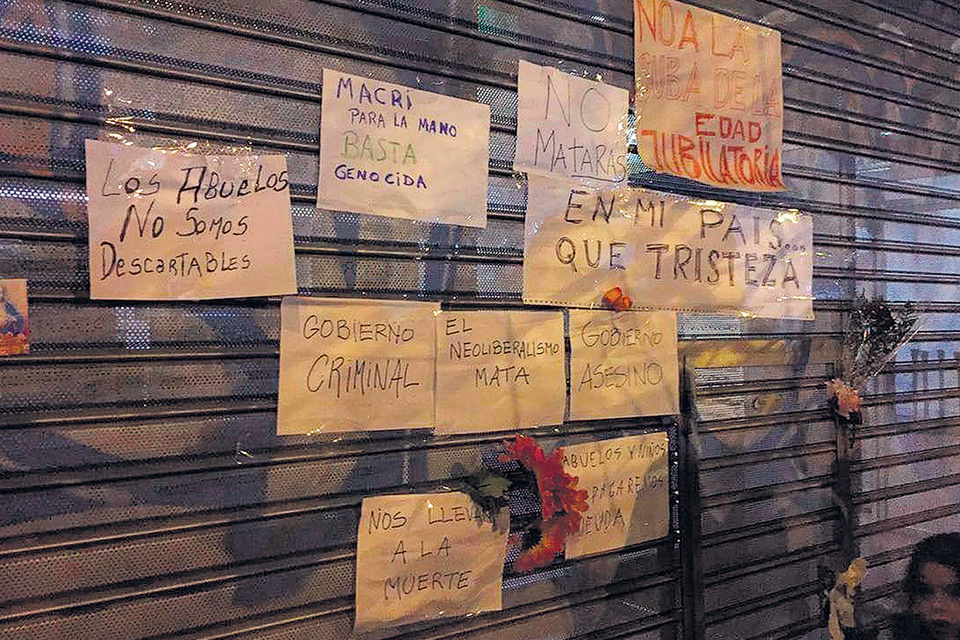 NO A LA
SUBA DE LA
EDAD
JUBILATORIA
MACRI
PARA LA MANO
BASTA
GENOCIDA
NO
MATARAS
LOS ABUELOS
NO SOMOS
DESCARTABLES
EN MI PAIS...
QUE TRISTEZA
GOBIERNO
CRIMINAL
EL
NEOLIBERALISMO
MATA
GOBIERNO
ASESINO
ABUELOS Y NIÑOS
PAGAREMOS
NOS LLEVA
A LA
MUERTE